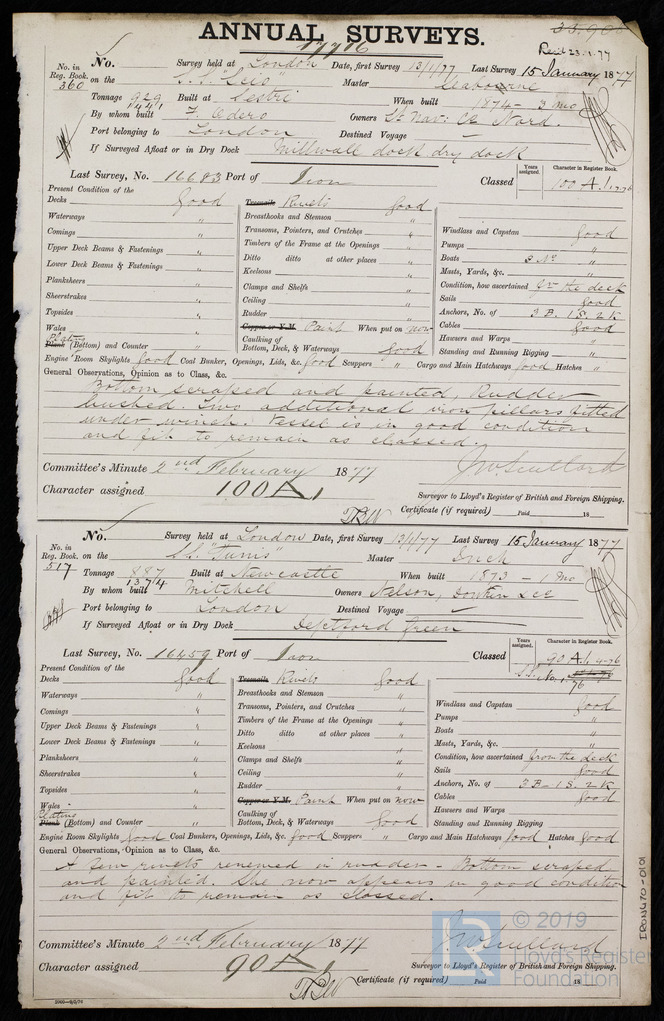 ANNUAL SURVEYS.
33.900
17716
Recd 23.1.77
No. in Reg. Book. 360
No. Survey held at London Date, first Survey 13/1/77 Last Survey 15 January 1877
on the S.S. "Leio" Master
Tonnage 929 1441 Built at Sestri When built 1874 - 3 mo
By whom built Owners
Port belonging to London Destined Voyage —
If Surveyed Afloat or in Dry Dock Millwall dock dry dock
Last Survey, No. 16683 Port of Iron Classed Years assigned. Character in Register Book. 100 A.1
Present Condition of the
Decks good Treenails Rivets good
Waterways " Breasthooks and Stemson "
Comings " Transoms, Pointers, and Crutches " Windlass and Capstan good
Upper Deck Beams & Fastenings " Timbers of the Frame at the Openings " Pumps "
Lower Deck Beams & Fastenings " Ditto ditto at other places " Boats 3 No "
Planksheers " Keelsons " Masts, Yards, &c. "
Sheerstrakes " Clamps and Shelfs " Condition, how ascertained fm the deck
Topsides " Ceiling " Sails good
Wales " Rudder " Anchors, No. of 3 B. 1 S. 2 K
Plating Plank (Bottom) and Counter " Copper or Y.M. Paint When put on now Cables good
Caulking of Bottom, Deck, & Waterways good Hawsers and Warps "
Standing and Running Rigging "
Engine Room Skylights good Coal Bunker, Openings, Lids, &c. good Scuppers " Cargo and Main Hatchways good Hatches "
General Observations, Opinion as to Class, &c.
Bottom scraped and painted, Rudder
bushed. Two additional iron pillars fitted
under winch. Vessel is in good condition
and fit to remain as classed.
Committee's Minute 2nd February 1877 J W Scullard
Character assigned 100 A 1 Surveyor to Lloyd's Register of British and Foreign Shipping.
Certificate (if required) Paid 18
No. in Reg. Book. 517
No. Survey held at London Date, first Survey 13/1/77 Last Survey 15 January 1877
on the S.S. "Tunis" Master
Tonnage 887 1374 Built at Newcastle When built 1873 - 1 Mo
By whom built Mitchell Owners Nelson, Donkin & Co
Port belonging to London Destined Voyage —
If Surveyed Afloat or in Dry Dock Deptford Green
Last Survey, No. 16259 Port of Iron Classed Years assigned. Character in Register Book. 90 A.1. 4-76
Present Condition of the
Decks good Treenails Rivets good
Waterways " Breasthooks and Stemson "
Comings " Transoms, Pointers, and Crutches " Windlass and Capstan good
Upper Deck Beams & Fastenings " Timbers of the Frame at the Openings " Pumps "
Lower Deck Beams & Fastenings " Ditto ditto at other places " Boats "
Planksheers " Keelsons " Masts, Yards, &c. "
Sheerstrakes " Clamps and Shelfs " Condition, how ascertained from the deck
Topsides " Ceiling " Sails good
Wales " Rudder " Anchors, No. of 3 B - 1 S. 2 K
Plating Plank (Bottom) and Counter " Copper or Y.M. Paint When put on now Cables good
Caulking of Bottom, Deck, & Waterways good Hawsers and Warps "
Standing and Running Rigging "
Engine Room Skylights good Coal Bunkers, Openings, Lids, &c. good Scuppers " Cargo and Main Hatchways good Hatches good
General Observations, Opinion as to Class, &c.
A few rivets renewed in rudder - Bottom scraped
and painted. She now appears in good condition
and fit to remain as classed.
Committee's Minute 2nd February 1877 J W Scullard
Character assigned 90 A 1 Surveyor to Lloyd's Register of British and Foreign Shipping.
Certificate (if required) Paid 18
IRON470-0101
LR © 2019
Lloyd's Register
Foundation